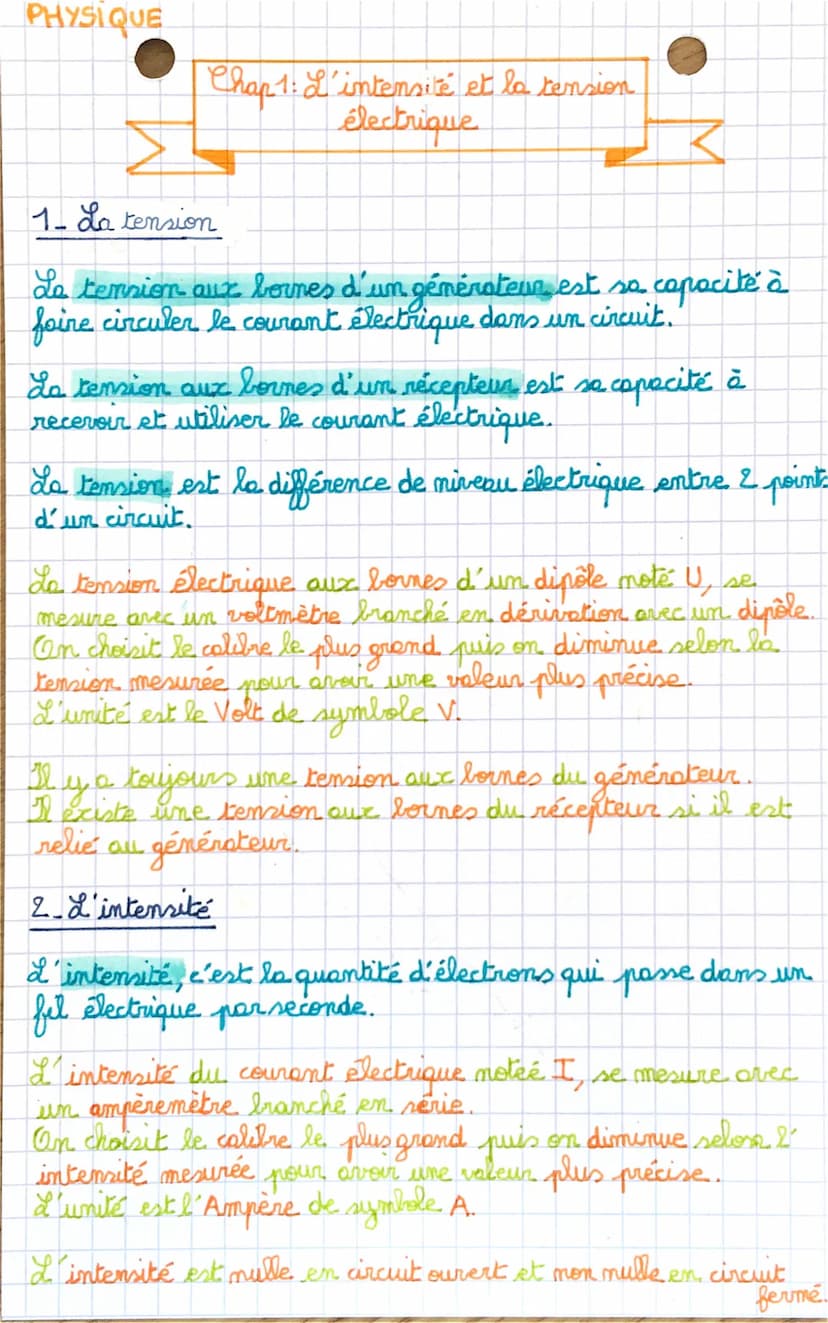 PHYSIQUE
Chap1: L'intensité et la tension
électrique
1- La tension
La tension aux bornes d'un générateur est sa capacité à
faire circuler le courant électrique dans un circuit.
La tension aux bornes d'un récepteur est sa capacité à
recevoir et utiliser le courant électrique.
La tension est la différence de niveau électrique entre 2 points
d'un circuit.
La tension électrique aux bornes d'un dipôle noté U, se
mesure avec un voltmètre branché en dérivation avec un dipôle.
On choisit le calibre le plus grand puis on diminue selon la
tension mesurée pour avoir une valeur plus précise.
L'unité est le Volt de symbole V.
Il y a toujours une tension aux bornes du générateur.
Il existe une tension aux bornes du récepteur si il est
relié au générateur.
2- L'intensité
L'intensité, c'est la quantité d'électrons qui passe dans un
fil électrique par seconde.
L'intensité du courant électrique noteé I, se mesure avec
un ampèremètre branché en série.
On choisit le calibre le plus grand puis on diminue selon l'
intensité mesurée pour avoir une valeur plus précise.
L'unité est l'Ampère de symbole A.
L'intensité est nulle en circuit ouvert et non nulle en circuit
fermé.